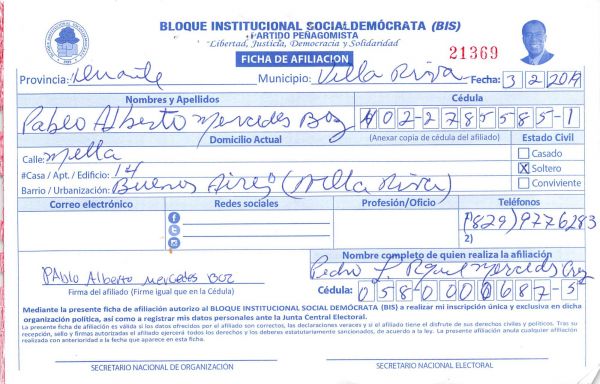 BLOQUE INSTITUCIONAL SOCIALDEMÓCRATA (BIS)
PARTIDO PEÑAGOMISTA
"Libertad, Justicia, Democracia y Solidaridad"
FICHA DE AFILIACION
21369
Provincia: Duarte Municipio: Villa Riva Fecha: 3 2 2019
Nombres y Apellidos Cédula
Pablo Alberto Mercedes Boz 402-2785585-1
Domicilio Actual (Anexar copia de cédula del afiliado) Estado Civil
Calle: mella Casado
#Casa / Apt. / Edificio: 14 X Soltero
Barrio / Urbanización: Buenos Aires (Villa Riva) Conviviente
Correo electrónico Redes sociales Profesión/Oficio Teléfonos
1) (829) 9776283
2)
Nombre completo de quien realiza la afiliación
PAblo Alberto mercedes BOZ Pedro Mercedes Cruz
Firma del afiliado (Firme igual que en la Cédula) Cédula: 058-0000687-5
Mediante la presente ficha de afiliación autorizo al BLOQUE INSTITUCIONAL SOCIAL DEMÓCRATA (BIS) a realizar mi inscripción única y exclusiva en dicha
organización política, así como a registrar mis datos personales ante la Junta Central Electoral.
La presente ficha de afiliación es válida si los datos ofrecidos por el afiliado son correctos, las declaraciones veraces y si el afiliado tiene el disfrute de sus derechos civiles y políticos. Tras su
recepción, sello y firmas autorizadas el afiliado ejercerá todos los derechos y los deberes estatutariamente sancionados, de acuerdo a la ley. La presente afiliación anula cualquier afiliación
realizada con anterioridad a la fecha que aparece en esta ficha.
SECRETARIO NACIONAL DE ORGANIZACIÓN SECRETARIO NACIONAL ELECTORAL